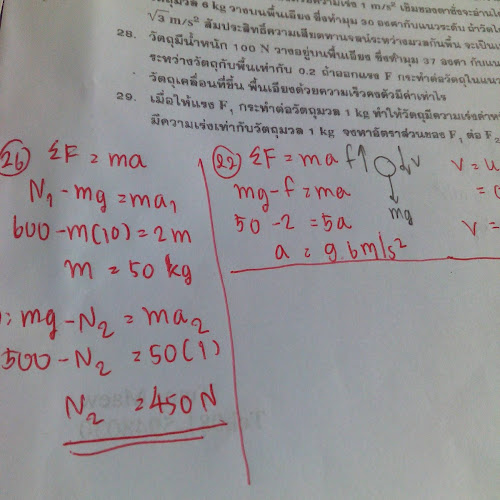 วัตถุมวล 6 kg วางบนพื้นเอียง ซึ่งทำมุม 30 องศากับแนวระดับ ถ้าวัตถุ
√3 m/s² สัมประสิทธิ์ความเสียดทานจลน์ระหว่างมวลกับพื้น จะเป็น
28. วัตถุมีน้ำหนัก 100 N วางอยู่บนพื้นเอียง ซึ่งทำมุม 37 องศา กับแนว
ระหว่างวัตถุกับพื้นเท่ากับ 0.2 ถ้าออกแรง F กระทำต่อวัตถุในแนว
วัตถุเคลื่อนที่ขึ้น พื้นเอียงด้วยความเร็วคงตัวมีค่าเท่าไร
29. เมื่อให้แรง F₁ กระทำต่อวัตถุมวล 1 kg ทำให้วัตถุมีความเร่งค่าหนึ่ง
มีความเร่งเท่ากับวัตถุมวล 1 kg จงหาอัตราส่วนของ F₁ ต่อ F₂
26 ΣF = ma
N₁ - mg = ma₁
600 - m(10) = 2m
m = 50 kg
: mg - N₂ = ma₂
500 - N₂ = 50(1)
N₂ = 450 N
22 ΣF = ma
mg - f = ma
50 - 2 = 5a
a = 9.6 m/s²
f↑ ↓v
mg
v = u
=
v =